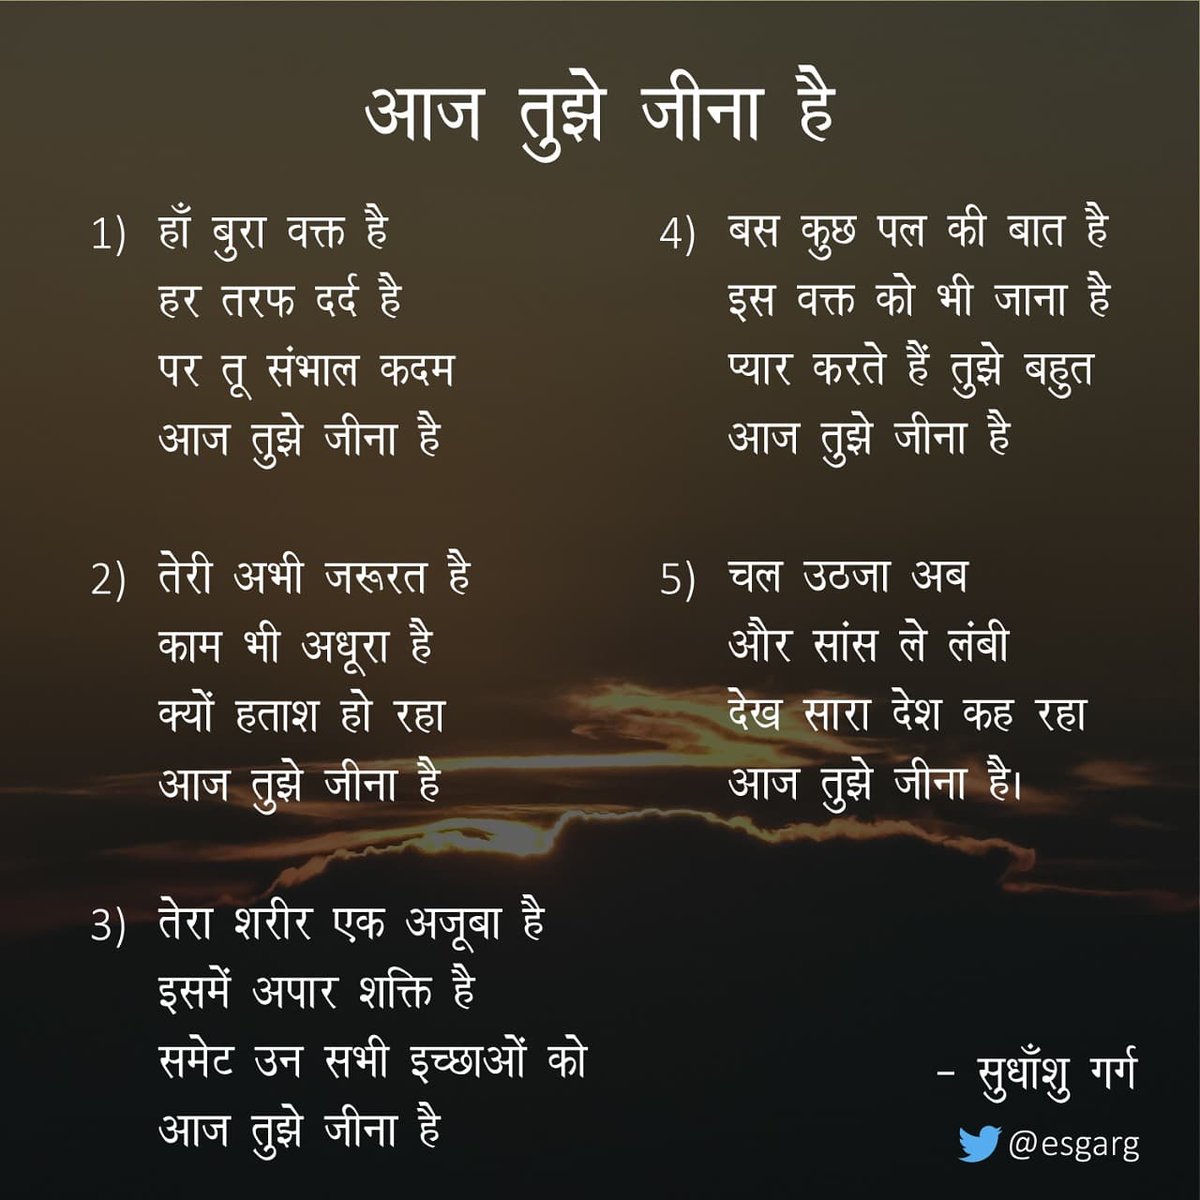 आज तुझे जीना है
1) हाँ बुरा वक्त है
हर तरफ दर्द है
पर तू संभाल कदम
आज तुझे जीना है
2) तेरी अभी जरूरत है
काम भी अधूरा है
क्यों हताश हो रहा
आज तुझे जीना है
3) तेरा शरीर एक अजूबा है
इसमें अपार शक्ति है
समेट उन सभी इच्छाओं को
आज तुझे जीना है
4) बस कुछ पल की बात है
इस वक्त को भी जाना है
प्यार करते हैं तुझे बहुत
आज तुझे जीना है
5) चल उठजा अब
और सांस ले लंबी
देख सारा देश कह रहा
आज तुझे जीना है।
- सुधाँशु गर्ग
@esgarg